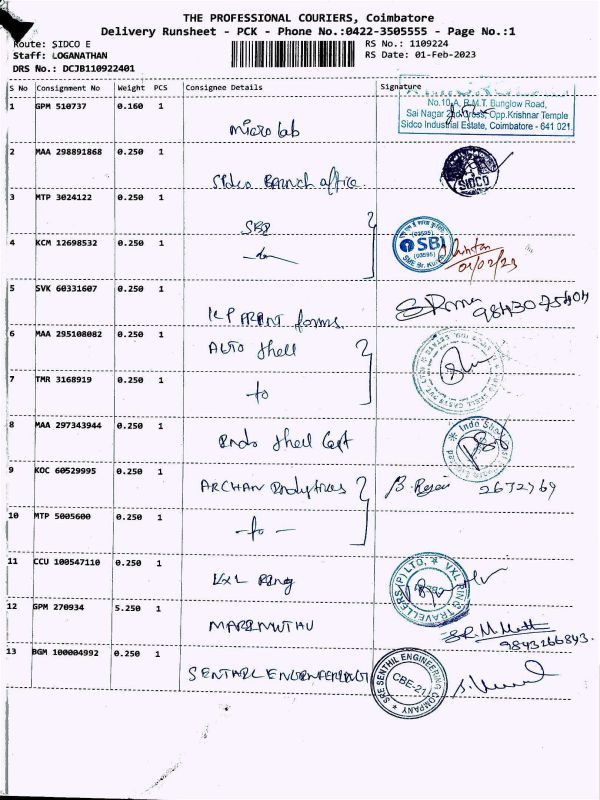 THE PROFESSIONAL COURIERS, Coimbatore
Delivery Runsheet - PCK - Phone No.:0422-3505555 - Page No.:1
Route: SIDCO E
RS No.: 1109224
Staff: LOGANATHAN
RS Date: 01-Feb-2023
DRS No.: DCJB110922401
S No Consignment No Weight PCS Consignee Details Signature
1 GPM 510737 0.160 1
No.10-A, R.M.T. Bunglow Road,
Sai Nagar 2nd Cross, Opp.Krishnar Temple
Sidco Industrial Estate, Coimbatore - 641 021.
Micro lab
2 MAA 298891868 0.250 1
Sidco Branch office.
SIDCO
3 MTP 3024122 0.250 1
SBI
4 KCM 12698532 0.250 1
SBI
(00595)
01/02/23
5 SVK 60331607 0.250 1
forms.
6 MAA 295108082 0.250 1
Shell
7 TMR 3168919 0.250 1
8 MAA 297343944 0.250 1
Indo Shell Cast
Indo Shell
9 KOC 60529995 0.250 1
ARCHAN
2672769
10 MTP 5005600 0.250 1
11 CCU 100547110 0.250 1
VXL Ring
VXL RING TRAVELLERS (P) LTD,
12 GPM 270934 5.250 1
9843266843.
13 BGM 100004992 0.250 1
SENTHIL
SRE SENTHIL ENGINEERING COMPANY
CBE-21